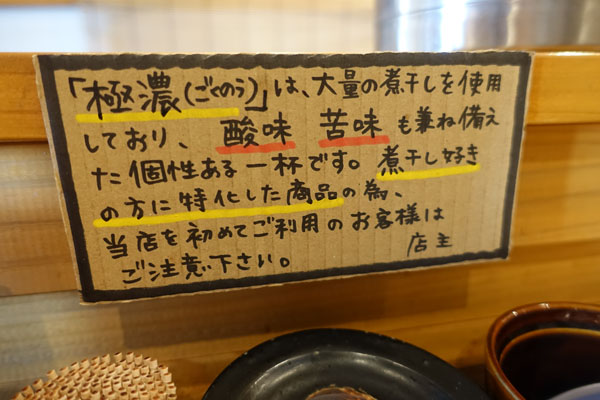 「極濃(ごくのう)」は、大量の煮干しを使用
しており、酸味 苦味も兼ね備え
た個性ある一杯です。煮干し好き
の方に特化した商品の為、
当店を初めてご利用のお客様は
ご注意下さい。 店主